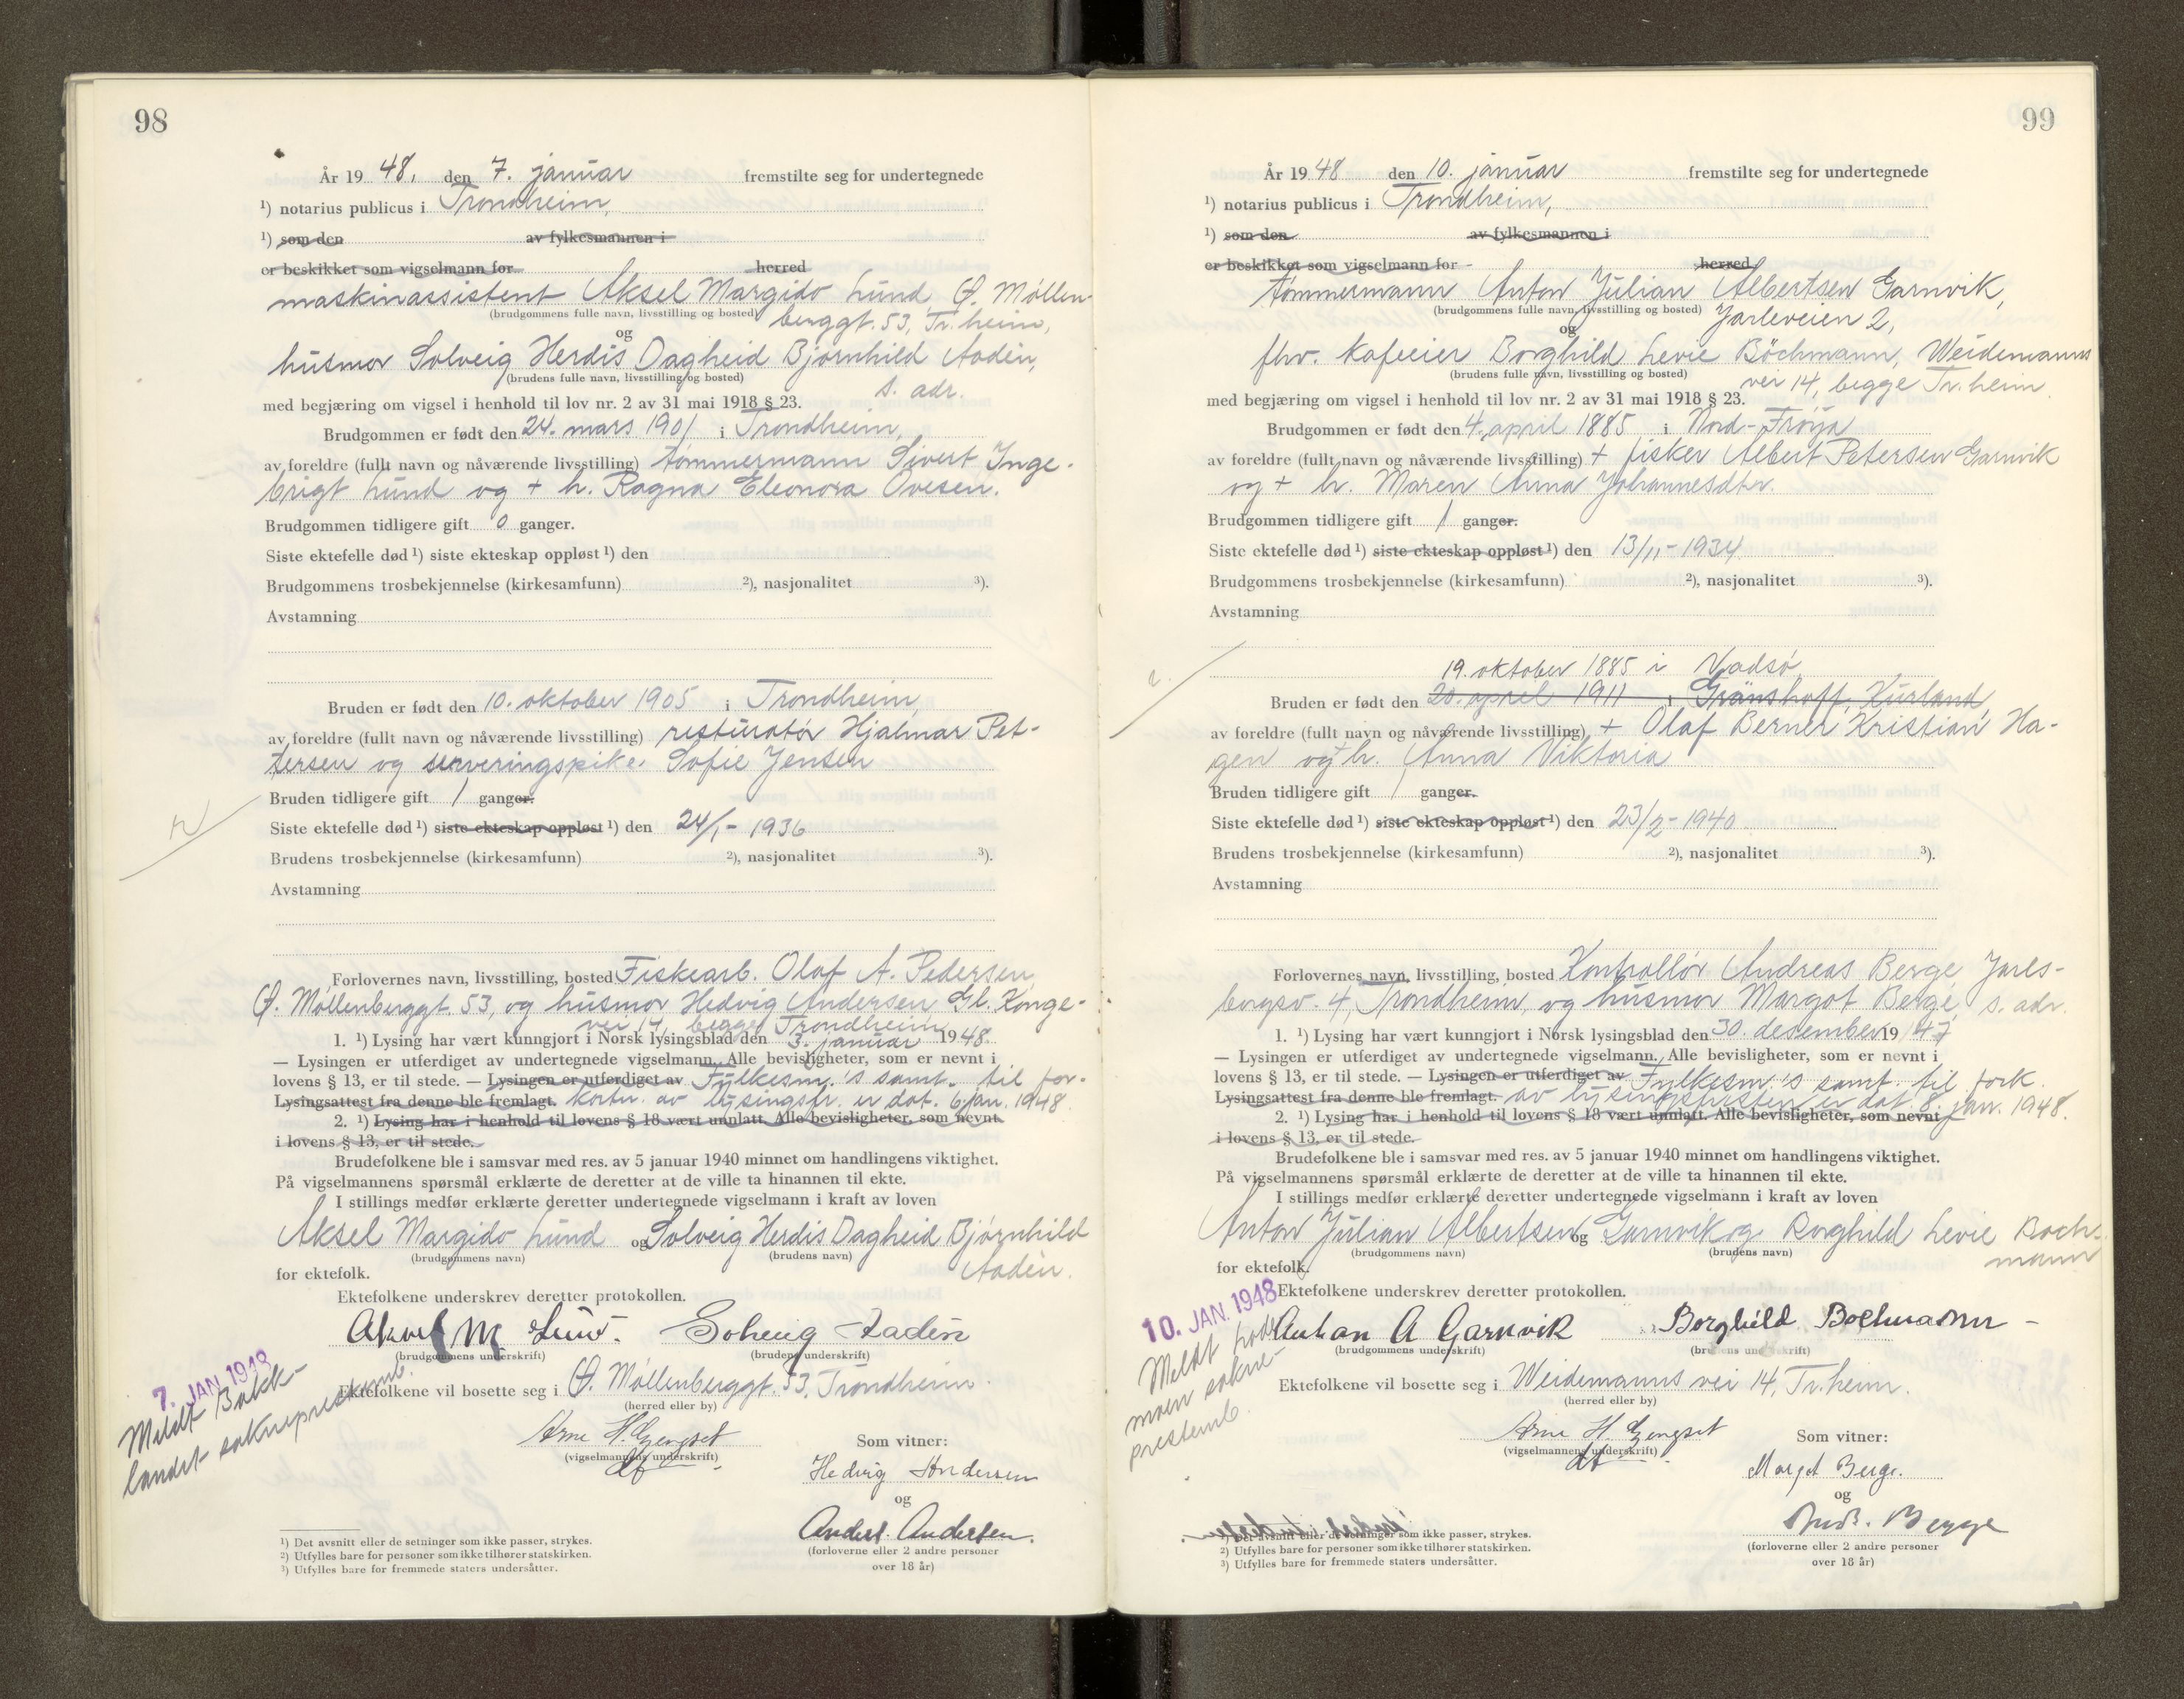 98
År 19 48, den 7. januar fremstilte seg for undertegnede
¹) notarius publicus i Trondheim,
¹) som den av fylkesmannen i
er beskikket som vigselmann for herred
maskinassistent Aksel Margido Lund, Ø. Møllen-
(brudgommens fulle navn, livsstilling og bosted) berggt. 53, Tr.heim,
og
husmor Solveig Herdis Dagheid Bjørnhild Aadén,
(brudens fulle navn, livsstilling og bosted) s. adr.
med begjæring om vigsel i henhold til lov nr. 2 av 31 mai 1918 § 23.
Brudgommen er født den 24. mars 1901 i Trondheim,
av foreldre (fullt navn og nåværende livsstilling) tømmermann Sivert Inge-
brigt Lund og + h. Ragna Eleonora Ovesen.
Brudgommen tidligere gift 0 ganger.
Siste ektefelle død ¹) siste ekteskap oppløst ¹) den
Brudgommens trosbekjennelse (kirkesamfunn) ²), nasjonalitet ³).
Avstamning
Bruden er født den 10. oktober 1905 i Trondheim,
av foreldre (fullt navn og nåværende livsstilling) resturatør Hjalmar Pet-
tersen og serveringspike Sofie Jensen
Bruden tidligere gift 1 ganger.
Siste ektefelle død ¹) siste ekteskap oppløst ¹) den 24/1- 1936
Brudens trosbekjennelse (kirkesamfunn) ²), nasjonalitet ³).
Avstamning
Forlovernes navn, livsstilling, bosted Fiskearb. Olaf A. Pedersen,
Ø. Møllenberggt. 53, og husmor Hedvig Andersen Gl. Konge-
vei 14, begge Trondheim
1. ¹) Lysing har vært kunngjort i Norsk lysingsblad den 3. januar 1948.
— Lysingen er utferdiget av undertegnede vigselmann. Alle bevisligheter, som er nevnt i
lovens § 13, er til stede. — Lysingen er utferdiget av Fylkesm.'s samt. til for-
Lysingsattest fra denne ble fremlagt. kortn. av lysingsfr. er dat. 6 jan. 1948.
2. ¹) Lysing har i henhold til lovens § 18 vært unnlatt. Alle bevisligheter, som nevnt
i lovens § 13, er til stede.
Brudefolkene ble i samsvar med res. av 5 januar 1940 minnet om handlingens viktighet.
På vigselmannens spørsmål erklærte de deretter at de ville ta hinannen til ekte.
I stillings medfør erklærte deretter undertegnede vigselmann i kraft av loven
Aksel Margido Lund og Solveig Herdis Dagheid Bjørnhild
(brudgommens navn) (brudens navn) Aadén.
for ektefolk.
Ektefolkene underskrev deretter protokollen.
Aksel M Lund. Solveig Aadén
(brudgommens underskrift) (brudens underskrift)
7. JAN. 1948
Meldt Bakk-
landet sokneprestemb.
Ektefolkene vil bosette seg i Ø. Møllenberggt. 53, Trondheim.
(herred eller by)
Arne H. Gjengset
(vigselmannens underskrift)
df
Som vitner:
Hedvig Andersen
og
Anders. Andersen.
(forloverne eller 2 andre personer
over 18 år)
¹) Det avsnitt eller de setninger som ikke passer, strykes.
²) Utfylles bare for personer som ikke tilhører statskirken.
³) Utfylles bare for fremmede staters undersåtter.
99
År 19 48 den 10. januar fremstilte seg for undertegnede
¹) notarius publicus i Trondheim,
¹) som den av fylkesmannen i
er beskikket som vigselmann for herred
tømmermann Anton Julian Albertsen Garnvik,
(brudgommens fulle navn, livsstilling og bosted) Jarleveien 2,
og
fhv. kafeeier Borghild Levie Böchmann, Weidemanns
(brudens fulle navn, livsstilling og bosted) vei 14, begge Tr.heim.
med begjæring om vigsel i henhold til lov nr. 2 av 31 mai 1918 § 23.
Brudgommen er født den 4. april 1885 i Nord-Frøya
av foreldre (fullt navn og nåværende livsstilling) + fisker Albert Petersen Garnvik
og + h. Maren Anna Johannesdtr.
Brudgommen tidligere gift 1 ganger.
Siste ektefelle død ¹) siste ekteskap oppløst ¹) den 13/11-1934
Brudgommens trosbekjennelse (kirkesamfunn) ²), nasjonalitet ³).
Avstamning
19. oktober 1885 i Vadsø
Bruden er født den 20. april 1911 i Gränshoff, Kurland,
av foreldre (fullt navn og nåværende livsstilling) + Olaf Berner Kristian Ha-
gen og + h. Anna Viktoria
Bruden tidligere gift 1 ganger.
Siste ektefelle død ¹) siste ekteskap oppløst ¹) den 23/2-1940
Brudens trosbekjennelse (kirkesamfunn) ²), nasjonalitet ³).
Avstamning
Forlovernes navn, livsstilling, bosted Kontrollør Andreas Berge Jarls-
borgsv. 4, Trondheim, og husmor Margot Berge, s. adr.
1. ¹) Lysing har vært kunngjort i Norsk lysingsblad den 30. desember 19 47
— Lysingen er utferdiget av undertegnede vigselmann. Alle bevisligheter, som er nevnt i
lovens § 13, er til stede. — Lysingen er utferdiget av Fylkesm.'s samt. til fork.
Lysingsattest fra denne ble fremlagt. av lysingsfristen er dat. 8. jan. 1948.
2. ¹) Lysing har i henhold til lovens § 18 vært unnlatt. Alle bevisligheter, som nevnt
i lovens § 13, er til stede.
Brudefolkene ble i samsvar med res. av 5 januar 1940 minnet om handlingens viktighet.
På vigselmannens spørsmål erklærte de deretter at de ville ta hinannen til ekte.
I stillings medfør erklærte deretter undertegnede vigselmann i kraft av loven
Anton Julian Albertsen og Garnvik og Borghild Levie Boch-
(brudgommens navn) (brudens navn) mann
for ektefolk.
Ektefolkene underskrev deretter protokollen.
10. JAN. 1948
Anton A Garnvik Borghild Bochmann
(brudgommens underskrift) (brudens underskrift)
Meldt hode
moen sokne-
prestemb.
Ektefolkene vil bosette seg i Weidemanns vei 14, Tr.heim.
(herred eller by)
Arne H. Gjengset
(vigselmannens underskrift)
df
Som vitner:
Margot Berge.
og
Andr. Berge
(forloverne eller 2 andre personer
over 18 år)
¹) Det avsnitt eller de setninger som ikke passer, strykes.
²) Utfylles bare for personer som ikke tilhører statskirken.
³) Utfylles bare for fremmede staters undersåtter.